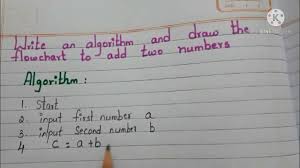 Write an algorithm and draw the
flowchart to add two numbers
Algorithm:
1. Start
2. input first number a
3. input Second number b
4 C = a+b
KINEMASTER